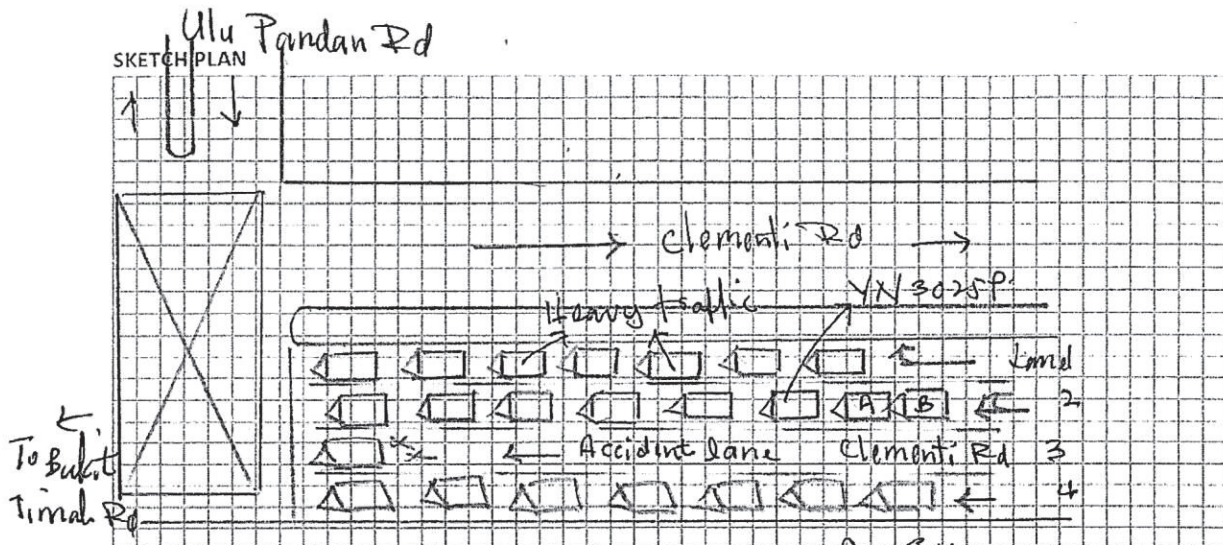 Ulu Pandan Rd
SKETCH PLAN
Clementi Rd
YN 3025P
Heavy traffic
A B 2
Accident lane Clementi Rd 3
4
To Bukit
Timah Rd